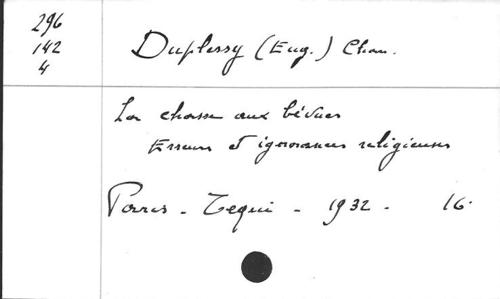 296
142
4
Duplessy (Eug.) Chan.
La chasse aux bévues
Erreurs et ignorances religieuses
Paris - Tequi - 1932 - 16.